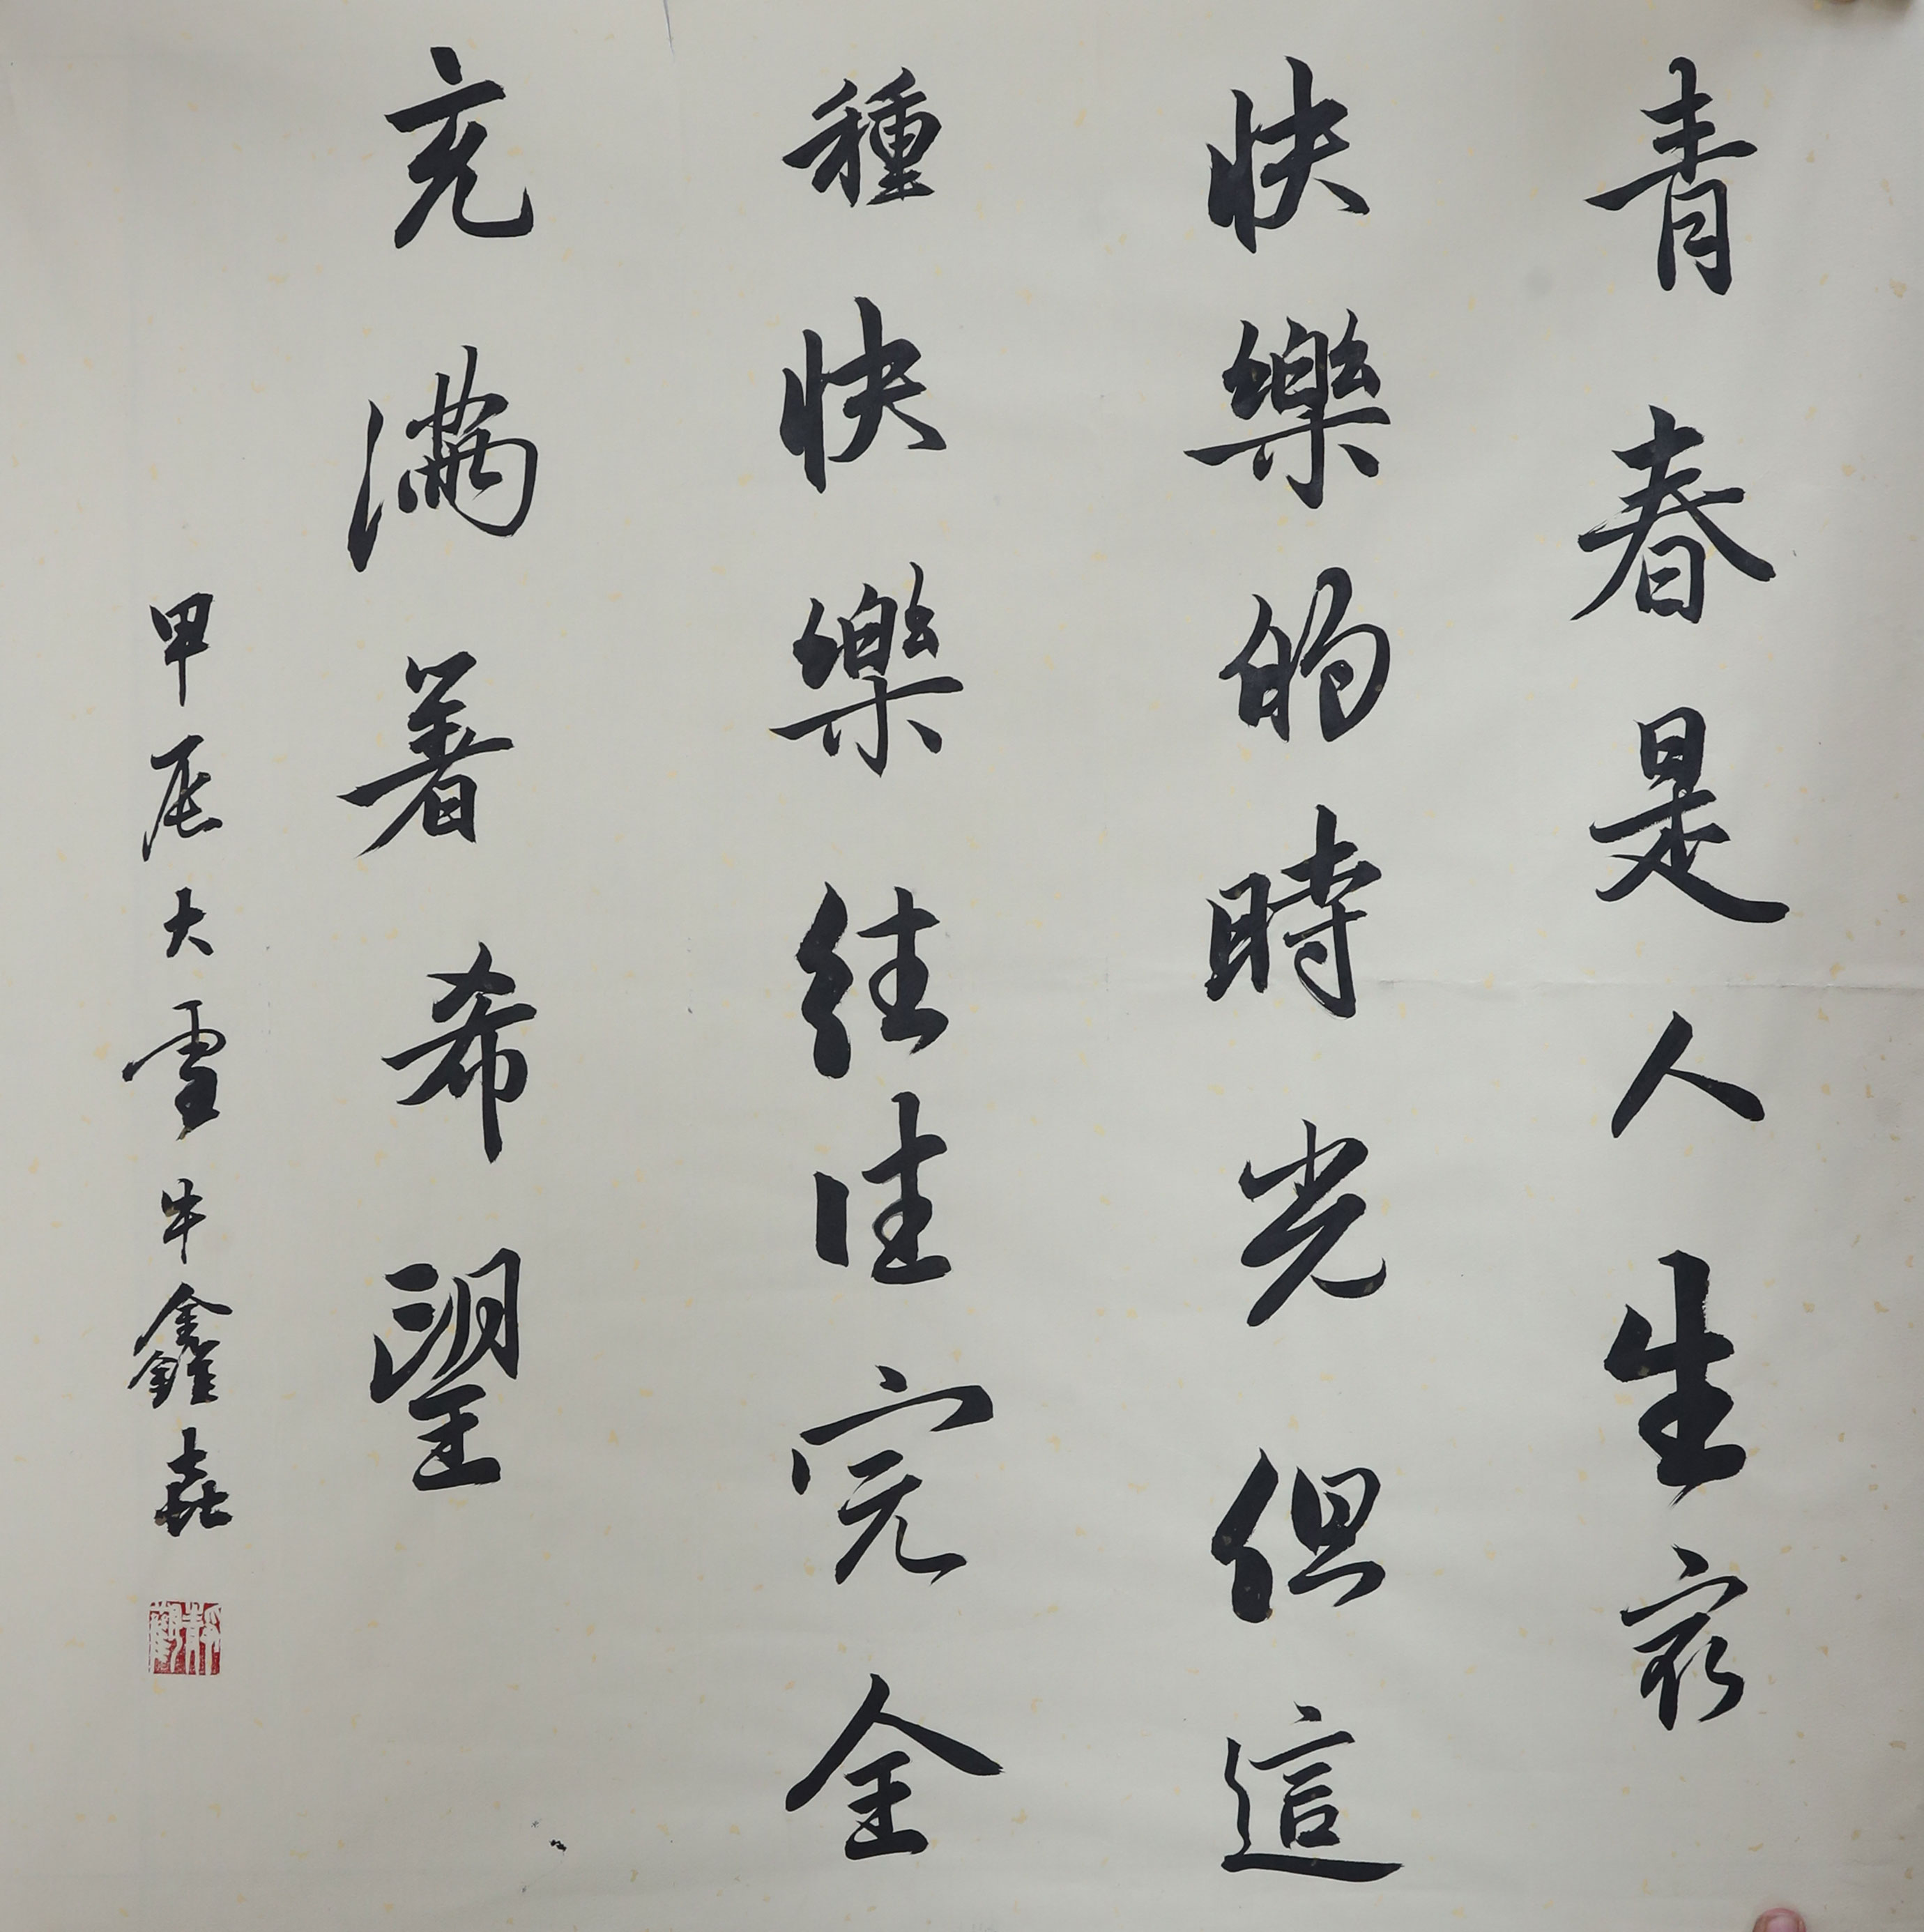 青春是人生最
快樂的時光但這
種快樂往往完全
充滿著希望
甲辰大雪牛鑫垚
靜觀